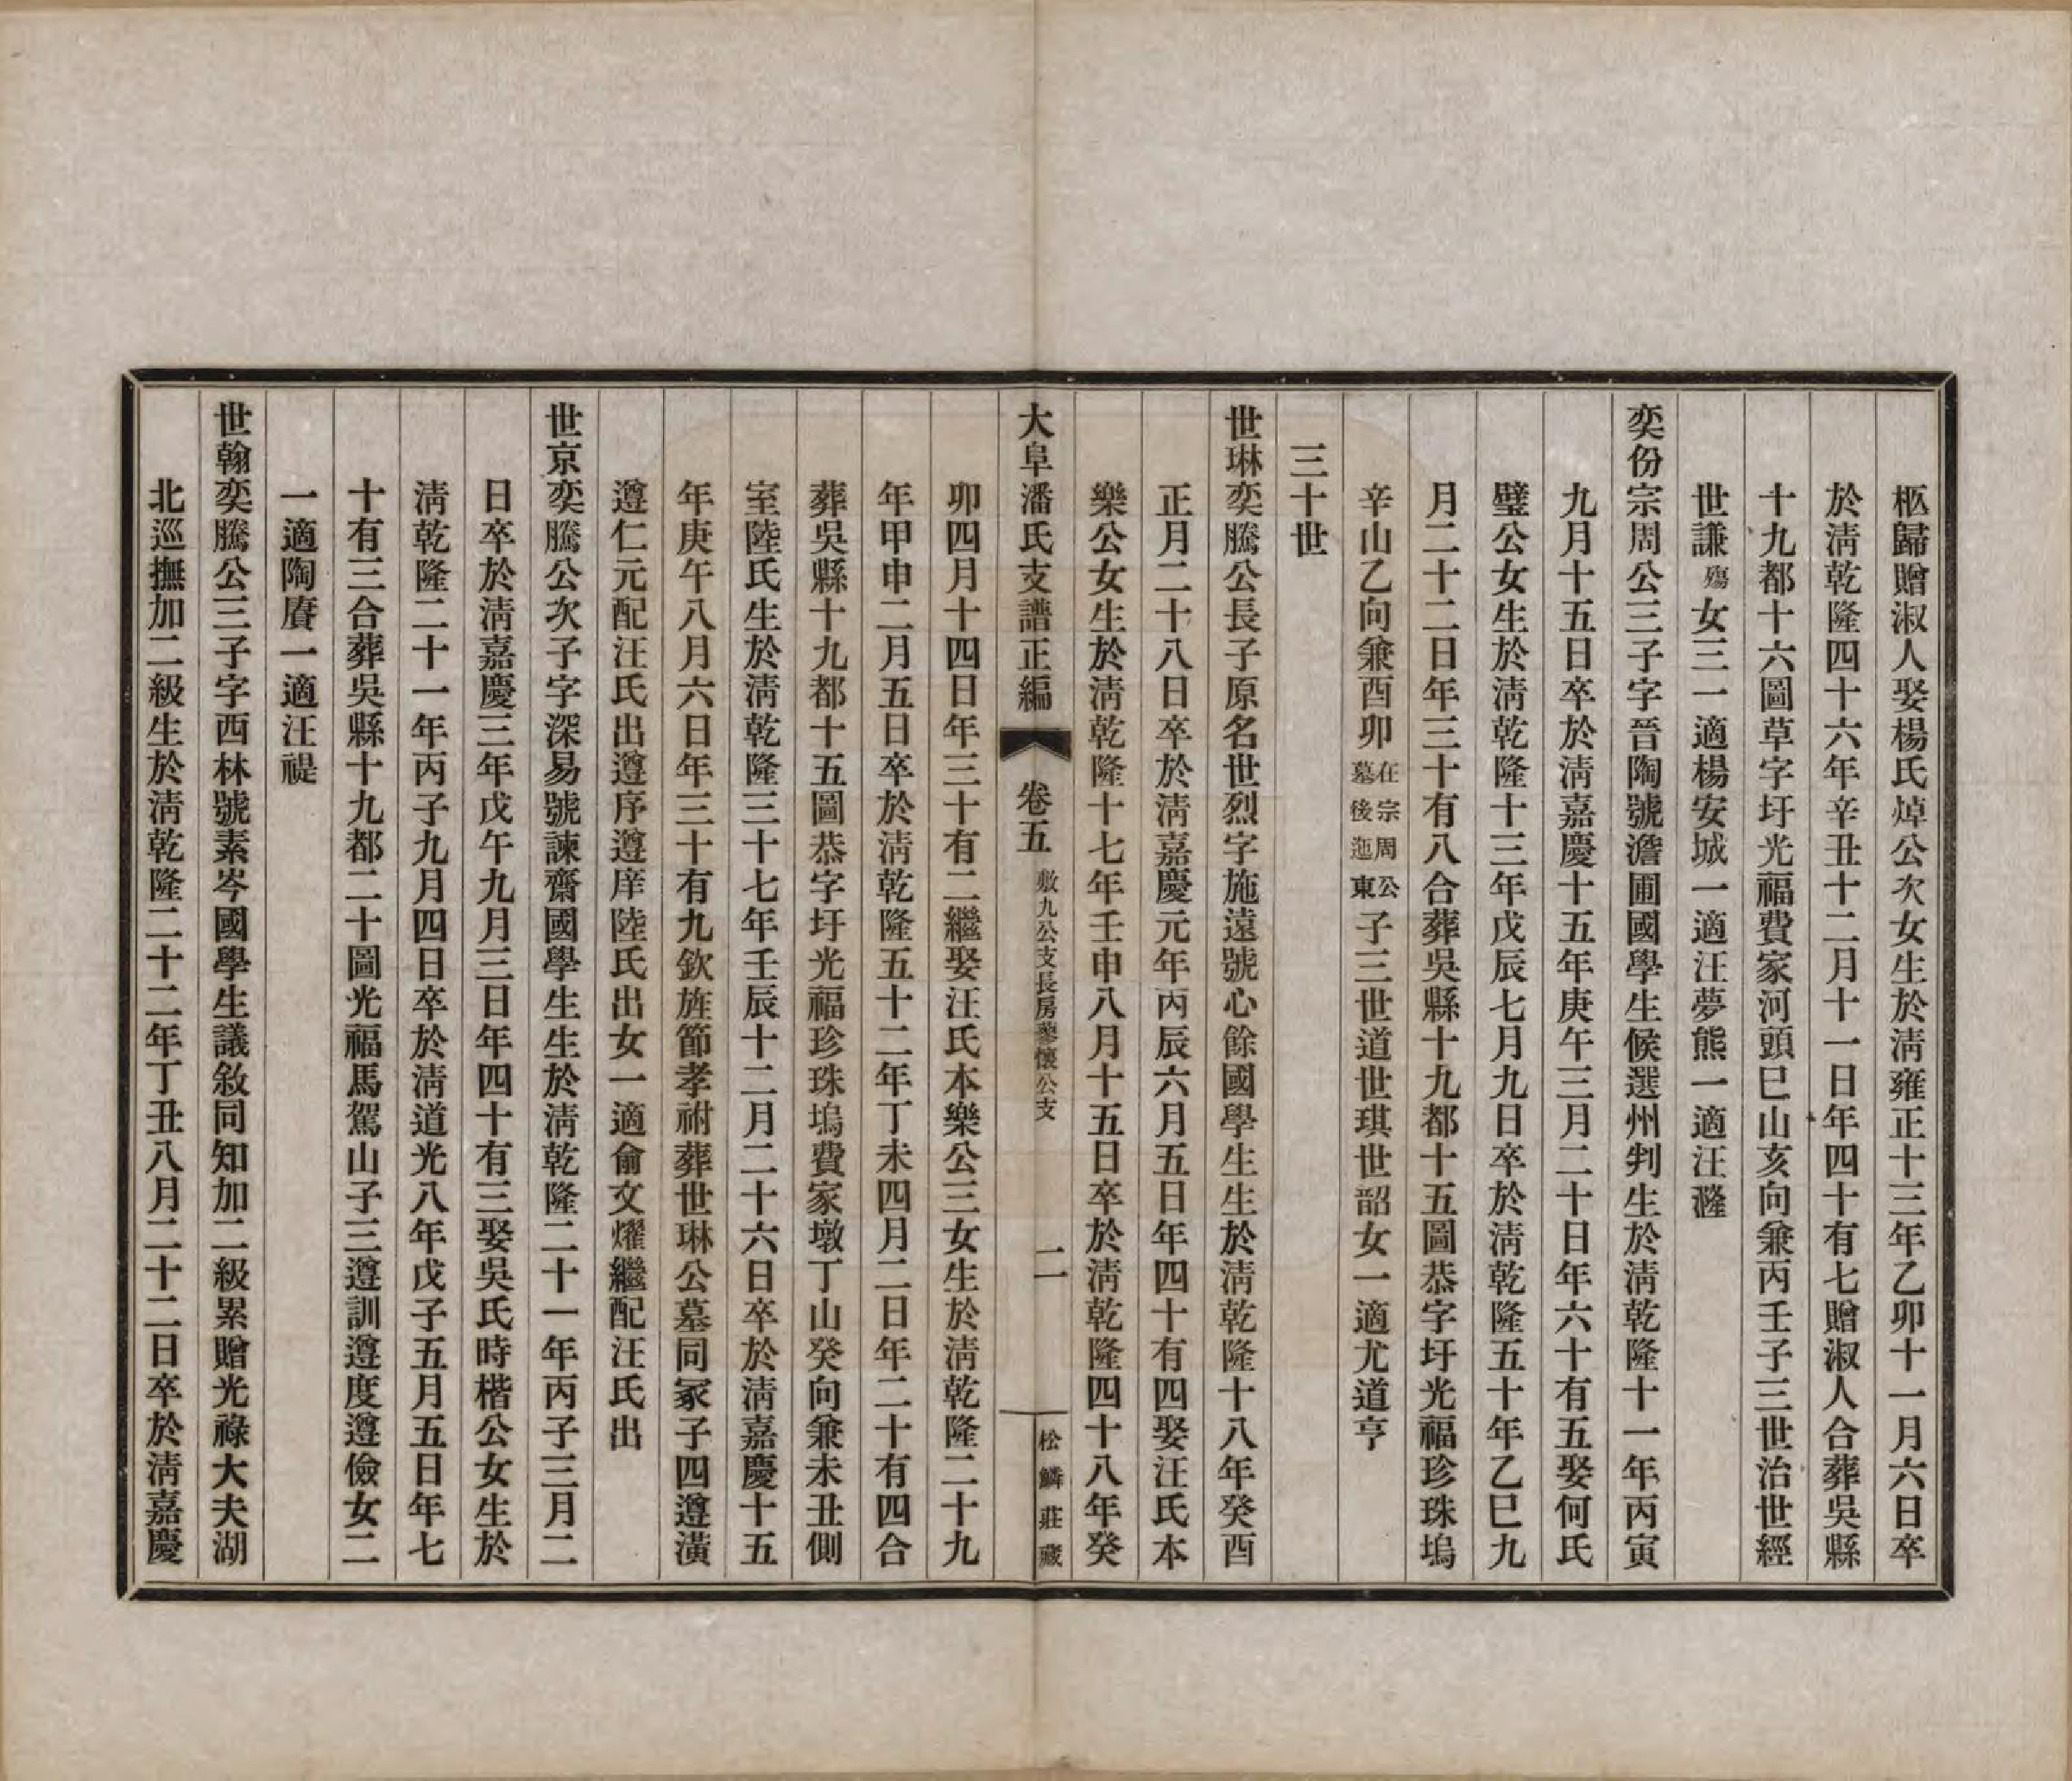 柩歸贈淑人娶楊氏焯公次女生於淸雍正十三年乙卯十一月六日卒
於淸乾隆四十六年辛丑十二月十一日年四十有七贈淑人合葬吳縣
十九都十六圖草字圩光福費家河頭巳山亥向兼丙壬子三世治世經
世謙殤女三一適楊安城一適汪夢熊一適汪瀣
奕份宗周公三子字晉陶號澹圃國學生候選州判生於淸乾隆十一年丙寅
九月十五日卒於淸嘉慶十五年庚午三月二十日年六十有五娶何氏
璧公女生於淸乾隆十三年戊辰七月九日卒於淸乾隆五十年乙巳九
月二十二日年三十有八合葬吳縣十九都十五圖恭字圩光福珍珠塢
辛山乙向兼酉卯在宗周公墓後迤東子三世道世琪世韶女一適尤道亨
三十世
世琳奕騰公長子原名世烈字施遠號心餘國學生生於淸乾隆十八年癸酉
正月二十八日卒於淸嘉慶元年丙辰六月五日年四十有四娶汪氏本
樂公女生於淸乾隆十七年壬申八月十五日卒於淸乾隆四十八年癸
大阜潘氏支譜正編 卷五 敷九公支長房蓼懷公支 二 松鱗莊藏
卯四月十四日年三十有二繼娶汪氏本樂公三女生於淸乾隆二十九
年甲申二月五日卒於淸乾隆五十二年丁未四月二日年二十有四合
葬吳縣十九都十五圖恭字圩光福珍珠塢費家墩丁山癸向兼未丑側
室陸氏生於淸乾隆三十七年壬辰十二月二十六日卒於淸嘉慶十五
年庚午八月六日年三十有九欽旌節孝祔葬世琳公墓同冢子四遵潢
遵仁元配汪氏出遵序遵庠陸氏出女一適俞文燿繼配汪氏出
世京奕騰公次子字深易號諫齋國學生生於淸乾隆二十一年丙子三月二
日卒於淸嘉慶三年戊午九月三日年四十有三娶吳氏時楷公女生於
淸乾隆二十一年丙子九月四日卒於淸道光八年戊子五月五日年七
十有三合葬吳縣十九都二十圖光福馬駕山子三遵訓遵度遵儉女二
一適陶賡一適汪禔
世翰奕騰公三子字西林號素岑國學生議敘同知加二級累贈光祿大夫湖
北巡撫加二級生於淸乾隆二十二年丁丑八月二十二日卒於淸嘉慶